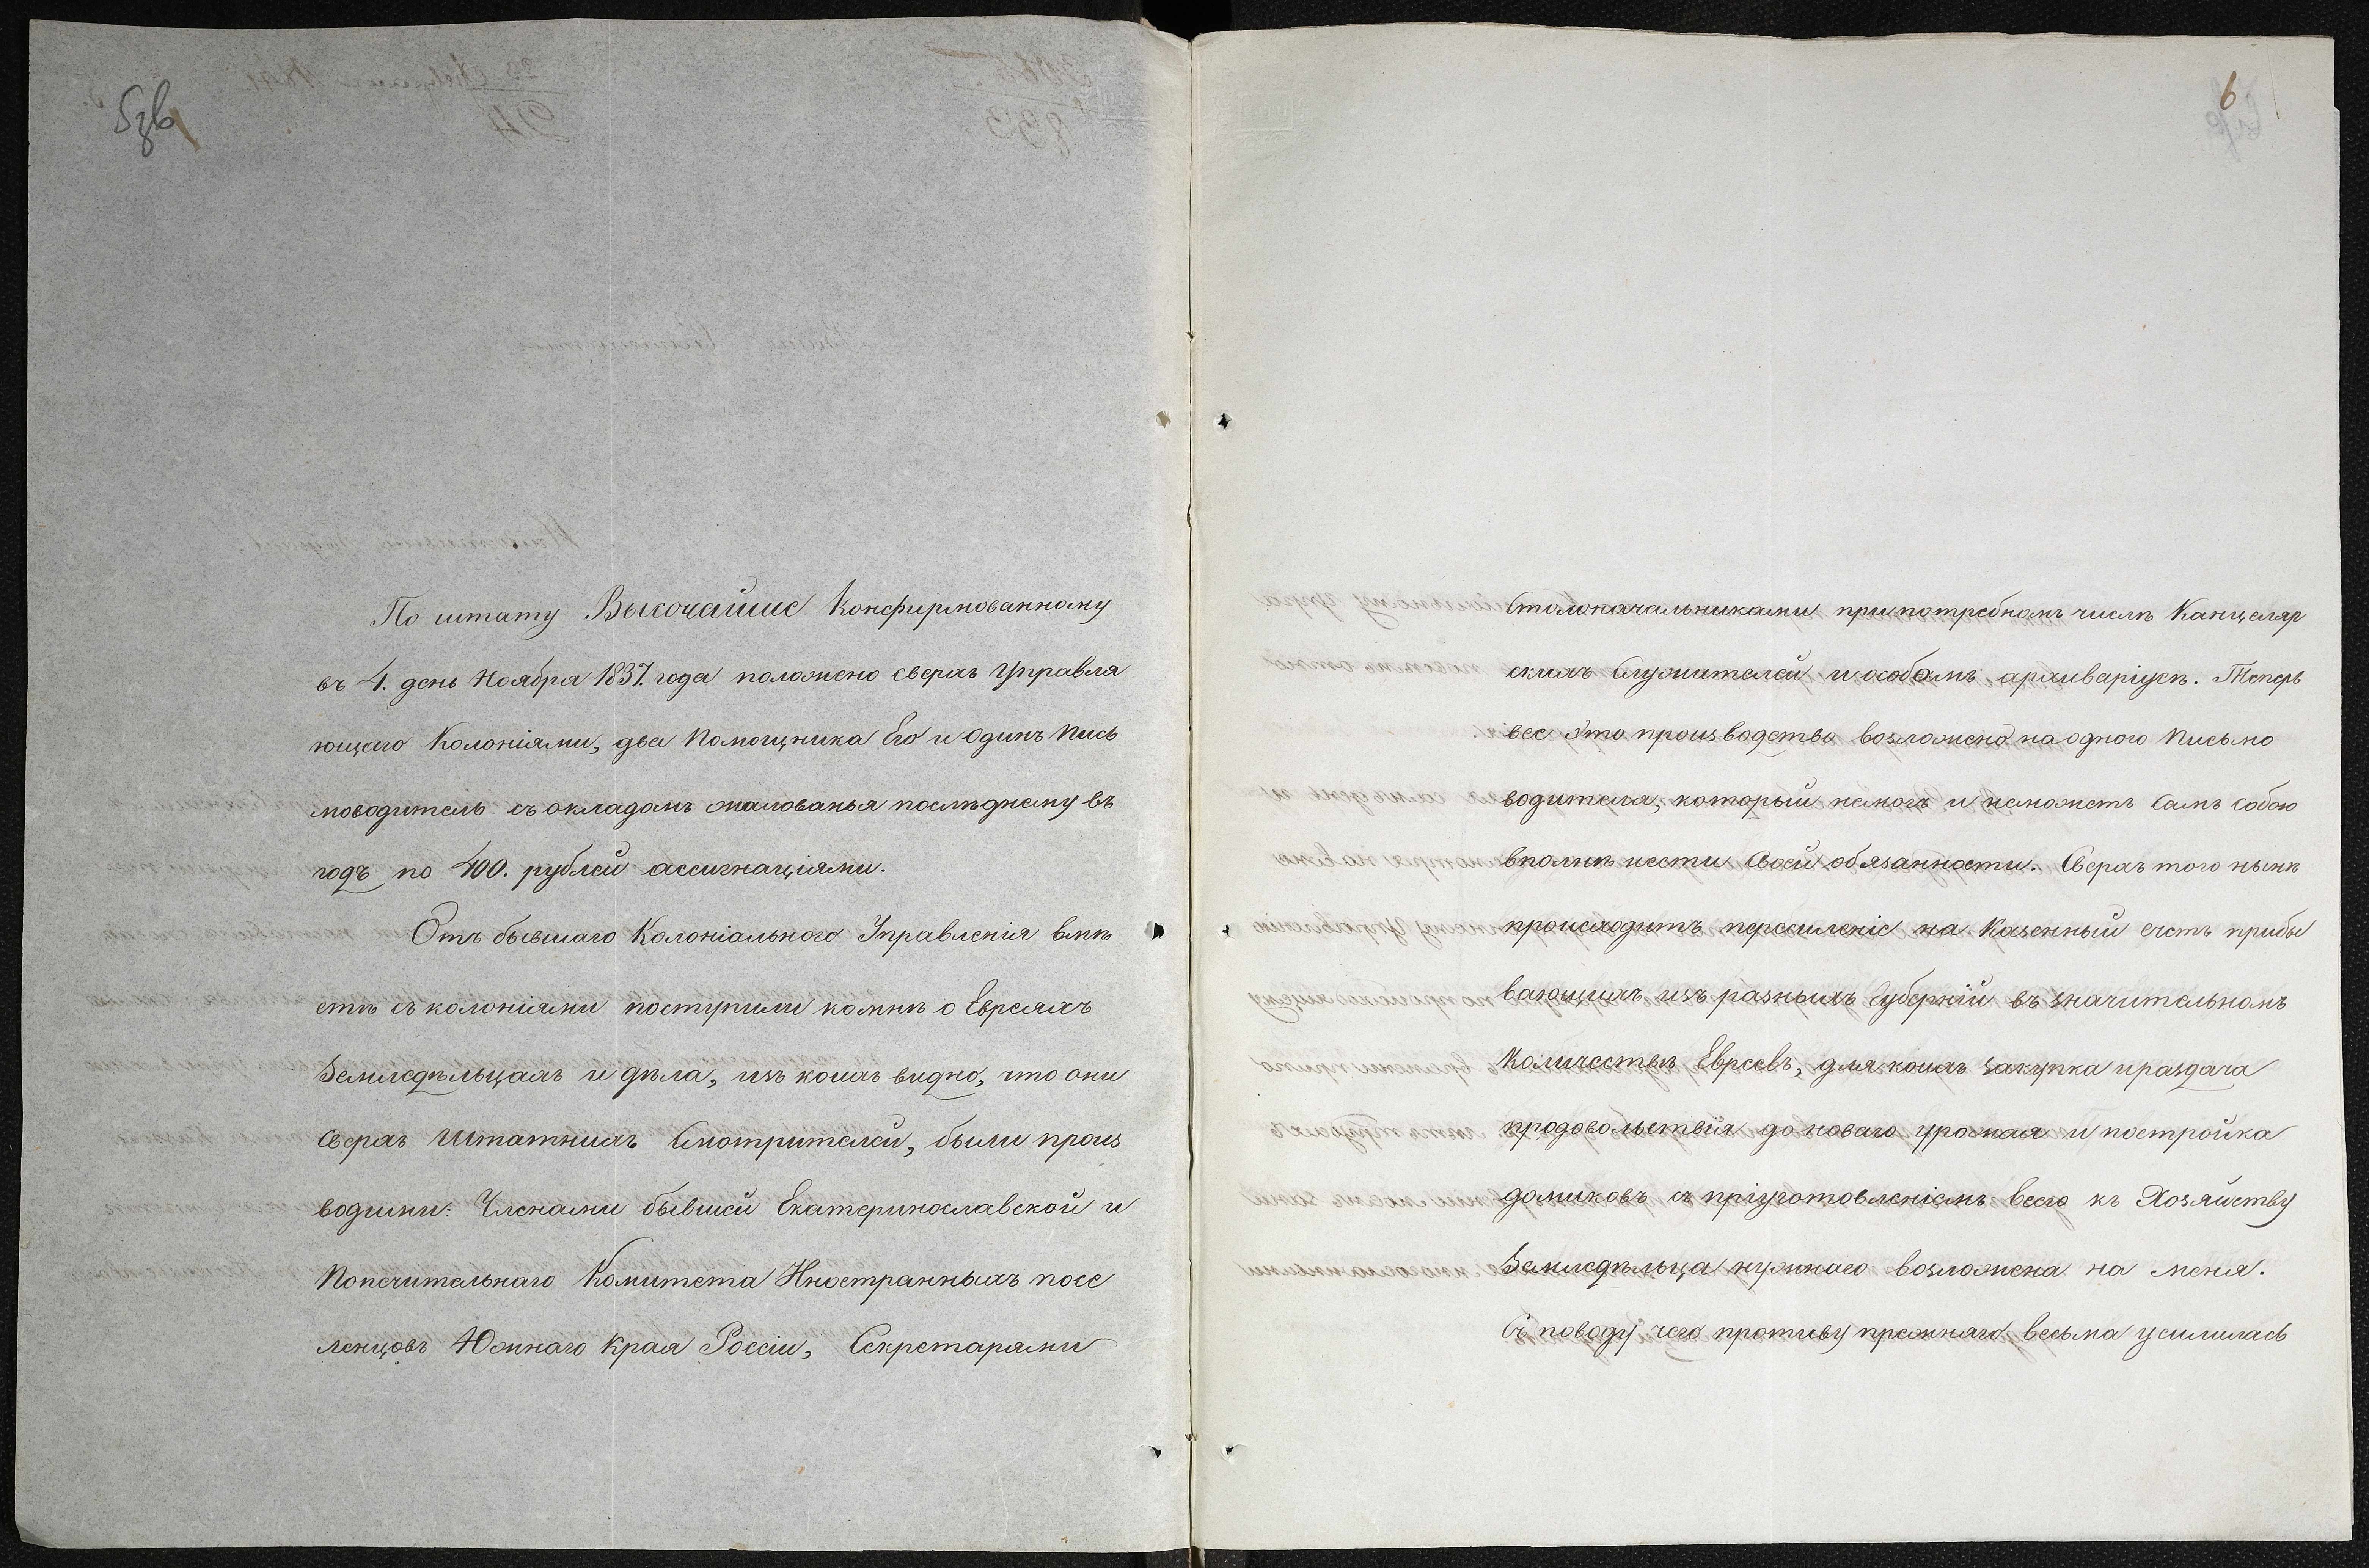 5зв
По штату Высочайше Конфирмованному
въ 4. день Ноября 1837. года положено сверхъ Управля
ющего Колоніями, два Помощника Его и одинъ Пись
моводитель съ окладомъ жалованья послѣднему въ
годъ по 400. рублей ассигнаціями.
Отъ бывшаго Колоніального Управленія вмѣ
стѣ съ колоніями поступили комнѣ о Евреяхъ
Земледѣльцахъ и дѣла, изъ коихъ видно, что они
сверхъ Штатныхъ Смотрителей, были произ
водимы: Членами бывшей Екатеринославской и
Попечительнаго Комитета Иностранныхъ посе
ленцовъ Южнаго Края Россіи, Секретарями
6
Столоначальниками при потребномъ числѣ Канцеляр
скихъ Служителей и особомъ архиваріусѣ. Теперь
все это производство возложено на одного Письмо
водителя, который немогъ и неможетъ Самъ собою
вполнѣ нести своей обязанности. Сверхъ того нынѣ
происходитъ переселеніе на Казенный счетъ прибы
вающихъ изъ разныхъ Губерній въ значительномъ
Количествѣ Евреевъ, для коихъ закупка и раздача
продовольствія до новаго урожая и постройка
домиковъ съ пріуготовленіемъ всего къ Хозяйству
Земледѣльца нужнаго возложена на меня.
поводу чего противу прежняго весьма усилилась